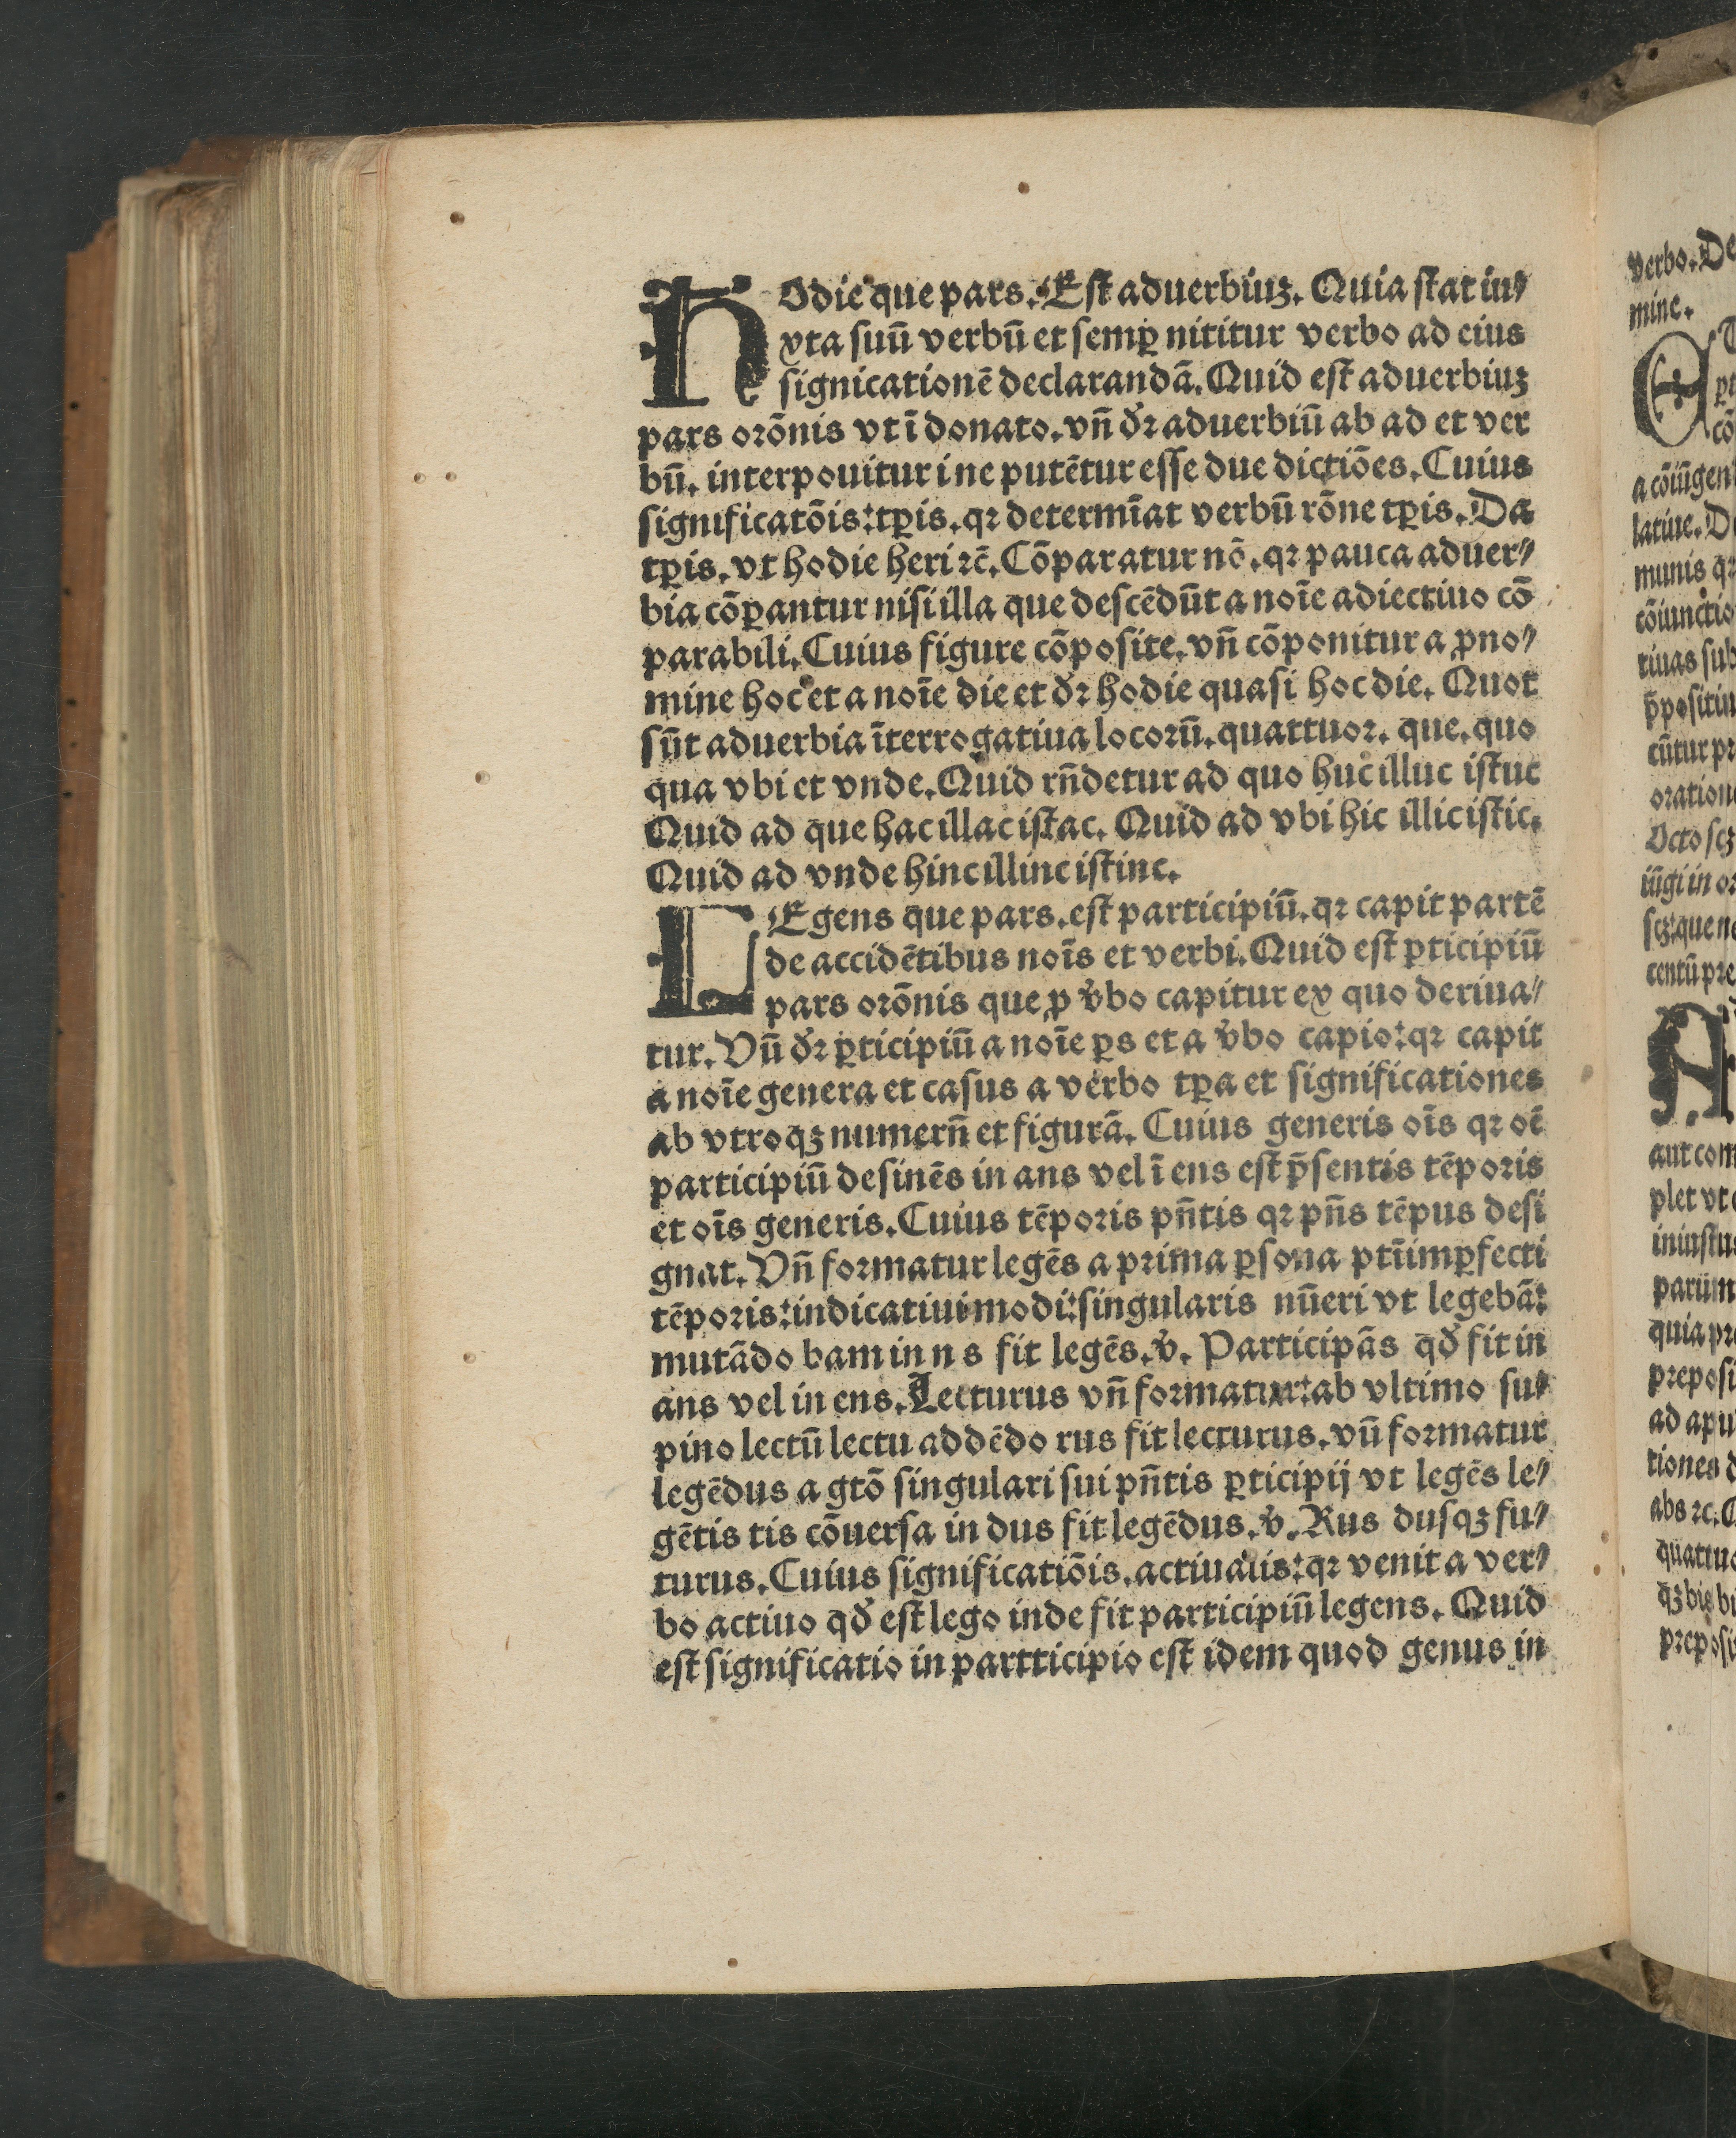 HOdie que pars. Est aduerbiuꝫ. Quia stat iu⸗
xta suū verbū et semꝑ nititur verbo ad eius
signicationē declarandā. Quid est aduerbiuꝫ
pars orōnis vt ī donato. vn̄ dr̄ aduerbiū ab ad et ver
bū. interpouitur i ne putētur esse due dictiōes. Cuius
significatōis: tꝑis. qꝛ determīat verbū rōne tꝑis. Da
tꝑis. vt hodie heri ꝛc̄. Cōparatur nō. qꝛ pauca aduer⸗
bia cōꝑantur nisi illa que descēdūt a noīe adiectiuo cō
parabili. Cuius figure cōposite. vn̄ cōponitur a ꝓno⸗
mine hoc et a noīe die et dr̄ hodie quasi hoc die. Quot
sūt aduerbia īterrogatiua locorū. quattuor. que. quo
qua vbi et vnde. Quid rn̄detur ad quo huc illuc istuc
Quid ad que hac illac istac. Quid ad vbi hic illic istic.
Quid ad vnde hinc illinc istinc.
LEgens que pars. est participiū. qꝛ capit partē
de accidētibus noīs et verbi. Quid est ꝑticipiū
pars orōnis que ꝓ v̄bo capitur ex quo deriua⸗
tur. Vn̄ dr̄ ꝑticipiū a noīe ꝑs et a v̄bo capio: qꝛ capit
a noīe genera et casus a verbo tꝑa et significationes
ab vtroqꝫ numerū et figurā. Cuius generis oīs qꝛ oē
participiū desinēs in ans vel ī ens est p̄sentis tēporis
et oīs generis. Cuius tēporis pn̄tis qꝛ pn̄s tēpus desi
gnat. Vn̄ formatur legēs a prima ꝑsona ptīimꝑfecti
tēporis: indicatiui modi: singularis nūeri vt legebā:
mutādo bam in n s fit legēs. v̄. Participās qd̄ fit in
ans vel in ens. Lecturus vn̄ formatur: ab vltimo su⸗
pino lectū lectu addēdo rus fit lecturus. vn̄ formatur
legēdus a gtō singulari sui pn̄tis ꝑticipij vt legēs le⸗
gētis tis cōuersa in dus fit legēdus. v̄. Rus dusqꝫ fu⸗
turus. Cuius significatiōis. actiualis: qꝛ venit a ver⸗
bo actiuo qd̄ est lego inde fit participiū legens. Quid
est significatio in partticipio est idem quod genus in
verbo. De
mine.
a cōiūgen
latiue. D
munis qꝛ
cōiunctio
tiuas sub
p̄positiu
cūtur pr
oration
Octo scꝫ
iūgi in or
scꝫ: que ne
centū pre
A
aut com
plet vt
iniustus
parum
quia pr
preposi
ad apu
tiones
abs ꝛc.
quattuo
qꝫ bis bi
preposi